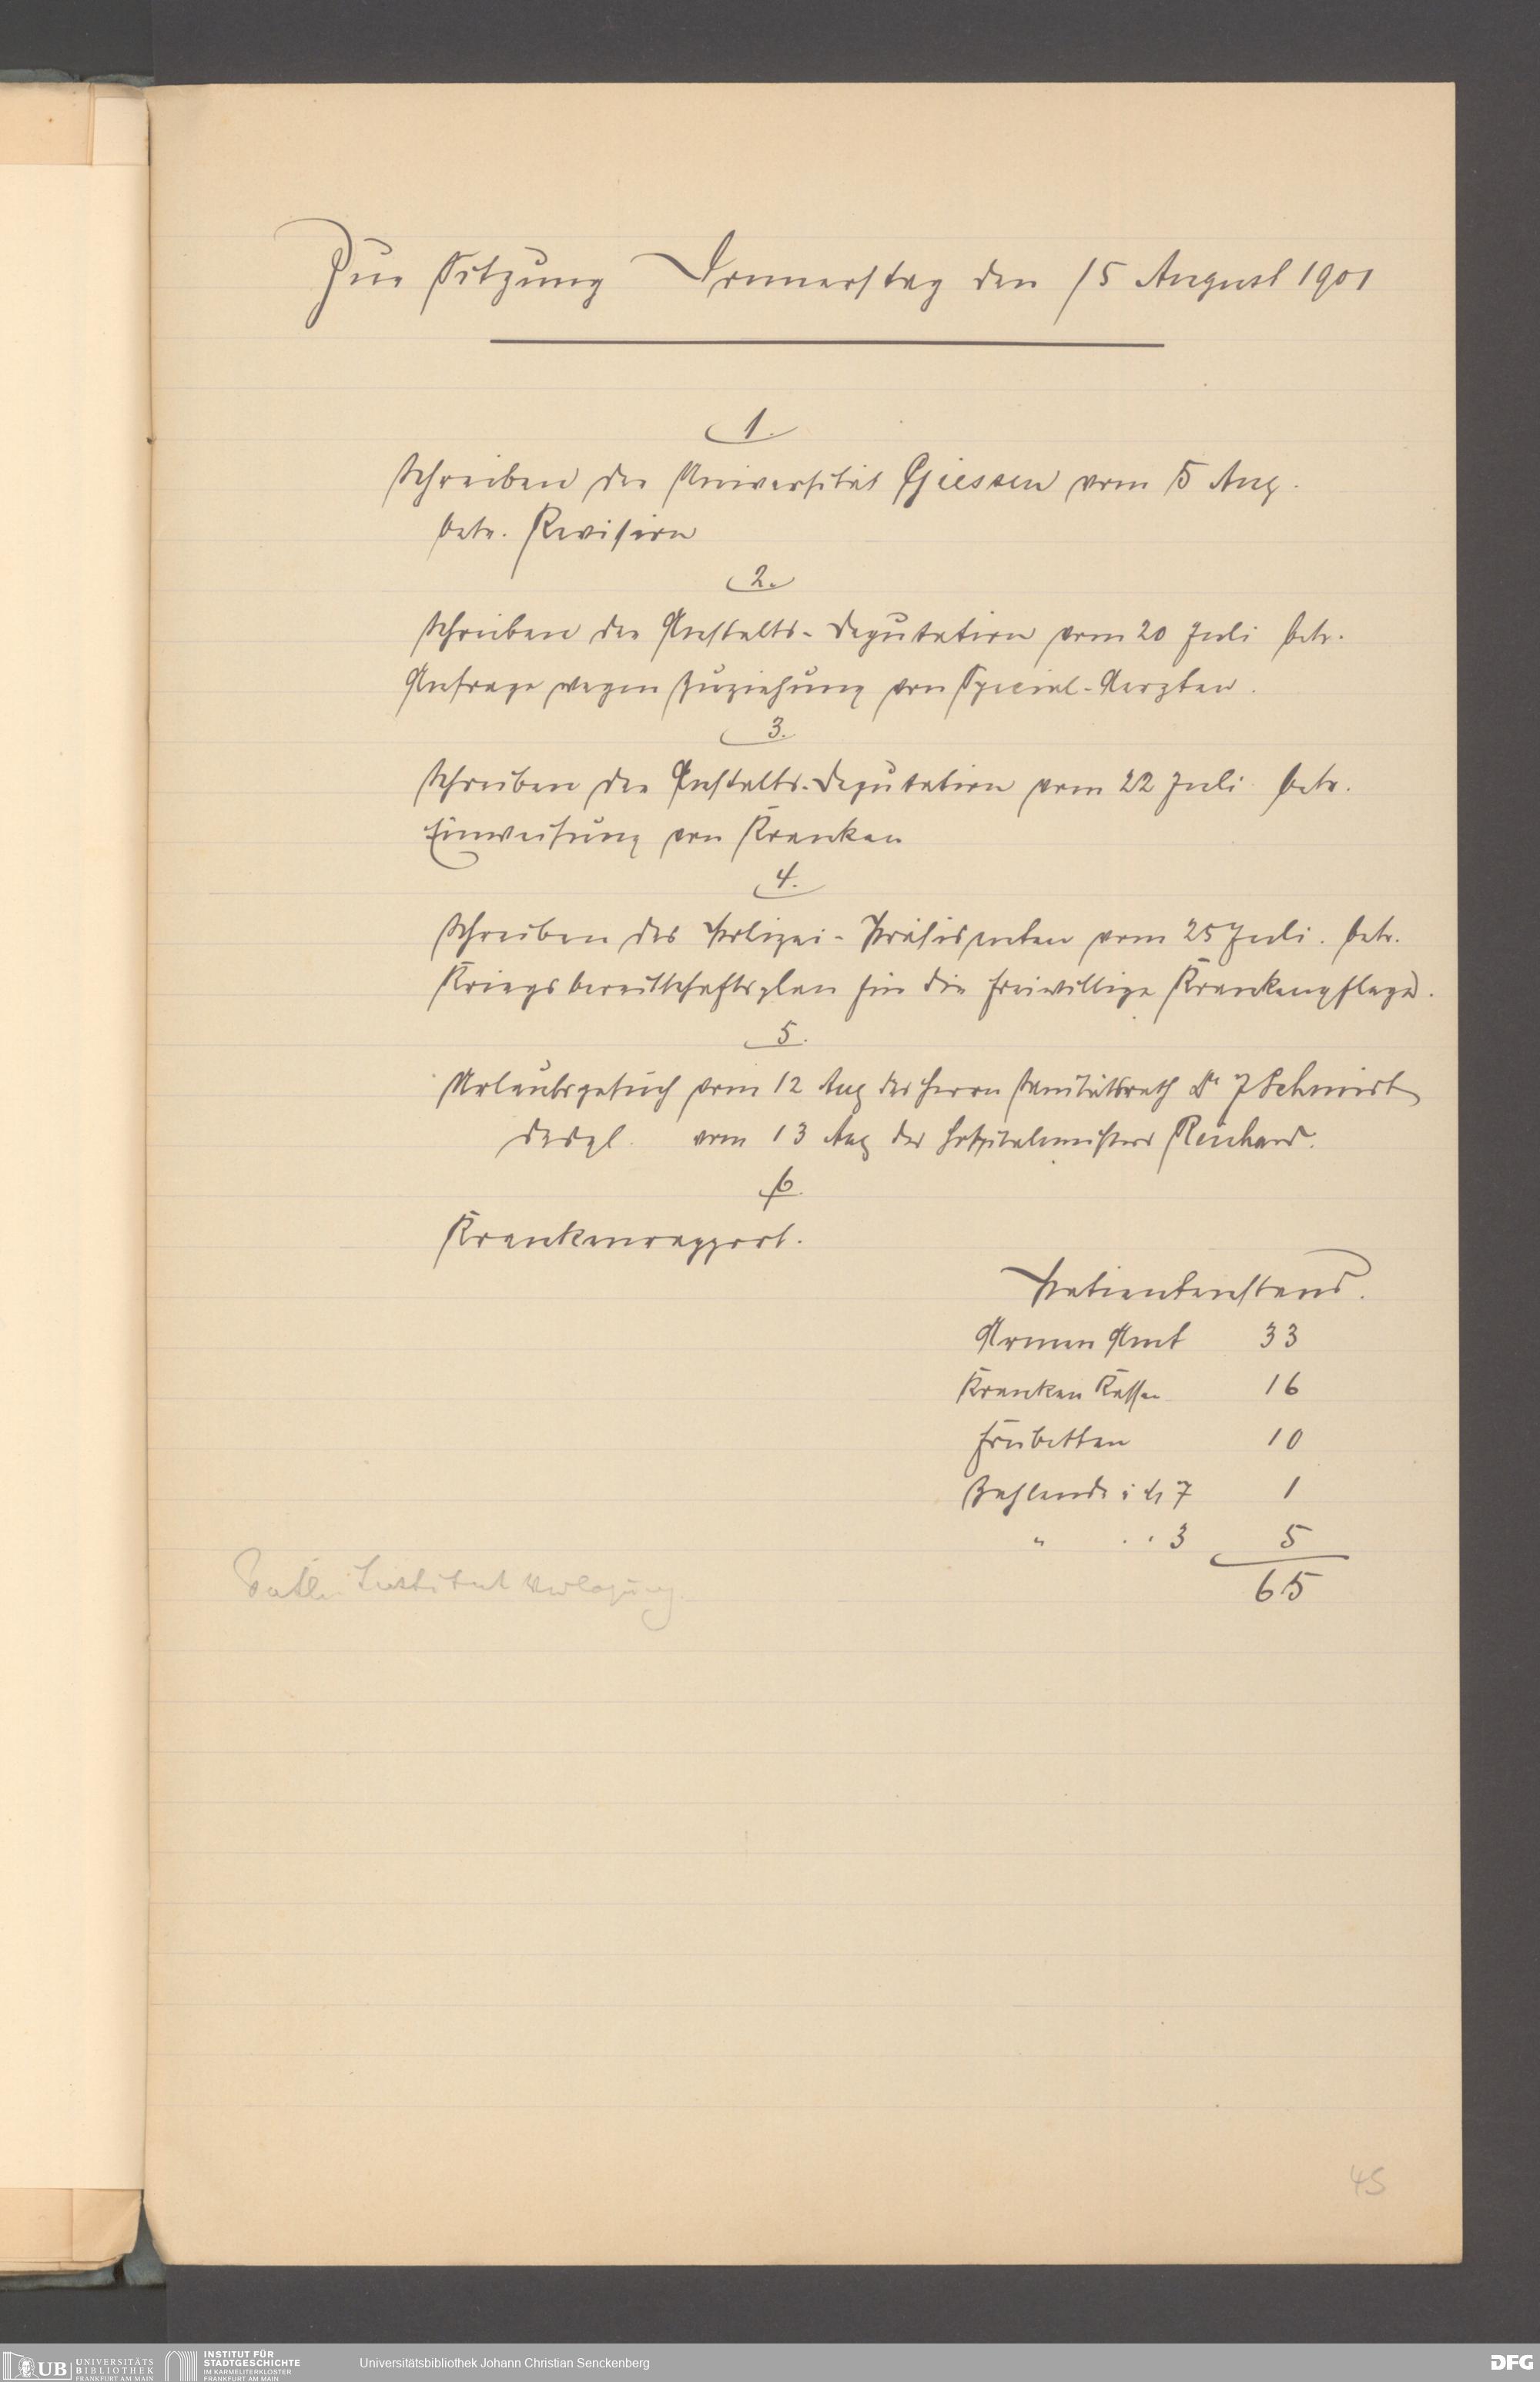 Zur Sitzung Donnerstag den 15 August 1901
1.
Schreiben der Universität Giessen vom 5 Aug.
betr. Revision
2.
Schreiben der Anstalts-Deputation vom 20 Juli betr.
Anfrage wegen Zuziehung von Special-Aerzten.
3.
Schreiben der Anstalts-Deputation vom 22 Juli betr.
Einweisung von Kranken
4.
Schreiben des Polizei-Präsidenten vom 25 Juli. betr.
Kriegsbereitschaftsplan für die freiwillige Krankenpflege.
5.
Urlaubsgesuch vom 12 Aug des Herrn Sanitätsrath Dr J Schmidt
desgl. vom 13 Aug des Hospitalmeisters Reichard.
6.
Krankenrapport.
Patientenstand.
Armen Amt 33
Kranken Kassen 16
Freibetten 10
Zahlende à M 7 1
" " " 3 5
65
Institut Verlegung
45
UB UNIVERSITÄTS
BIBLIOTHEK
FRANKFURT AM MAIN
INSTITUT FÜR
STADTGESCHICHTE
IM KARMELITERKLOSTER
FRANKFURT AM MAIN
Universitätsbibliothek Johann Christian Senckenberg
DFG